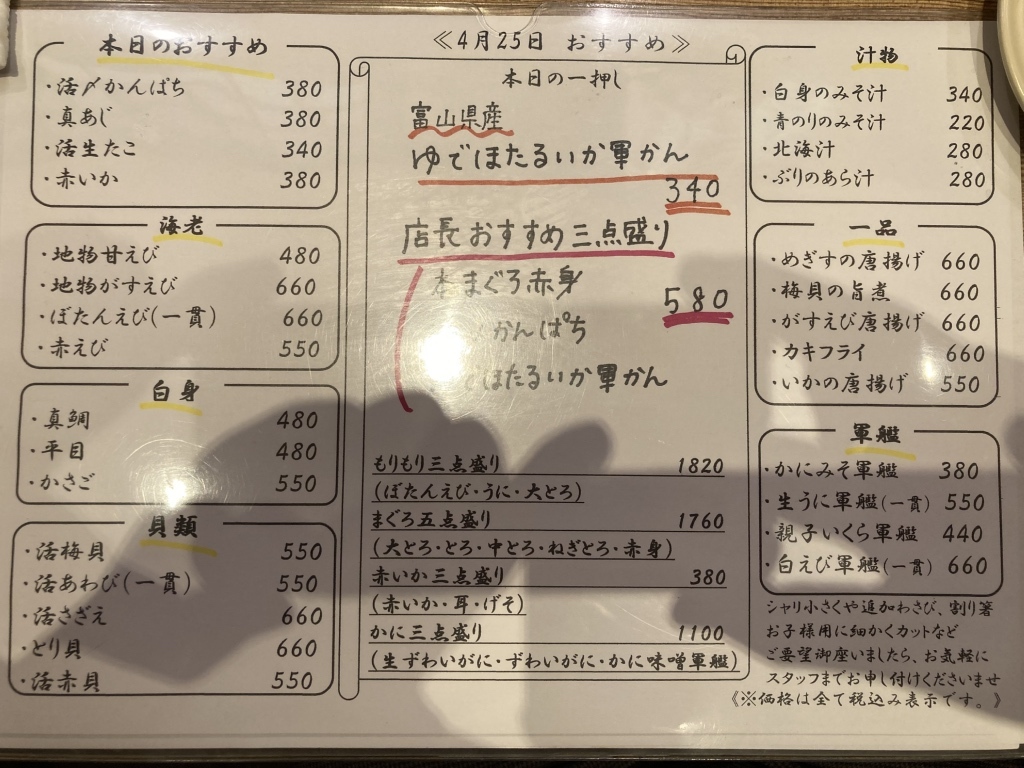 ≪4月25日 おすすめ≫
本日のおすすめ
・活〆かんぱち 380
・真あじ 380
・活生たこ 340
・赤いか 380
海老
・地物甘えび 480
・地物がすえび 660
・ぼたんえび(一貫) 660
・赤えび 550
白身
・真鯛 480
・平目 480
・かさご 550
貝類
・活梅貝 550
・活あわび(一貫) 550
・活さざえ 660
・とり貝 660
・活赤貝 550
本日の一押し
富山県産
ゆでほたるいか軍かん
340
店長おすすめ三点盛り
本まぐろ赤身
580
かんぱち
ほたるいか軍かん
もりもり三点盛り 1820
(ぼたんえび・うに・大とろ)
まぐろ五点盛り 1760
(大とろ・とろ・中とろ・ねぎとろ・赤身)
赤いか三点盛り 380
(赤いか・耳・げそ)
かに三点盛り 1100
(生ずわいがに・ずわいがに・かに味噌軍艦)
汁物
・白身のみそ汁 340
・青のりのみそ汁 220
・北海汁 280
・ぶりのあら汁 280
一品
・めぎすの唐揚げ 660
・梅貝の旨煮 660
・がすえび唐揚げ 660
・カキフライ 660
・いかの唐揚げ 550
軍艦
・かにみそ軍艦 380
・生うに軍艦(一貫) 550
・親子いくら軍艦 440
・白えび軍艦(一貫) 660
シャリ小さくや追加わさび、割り箸
お子様用に細かくカットなど
ご要望御座いましたら、お気軽に
スタッフまでお申し付けくださいませ
《※価格は全て税込み表示です。》